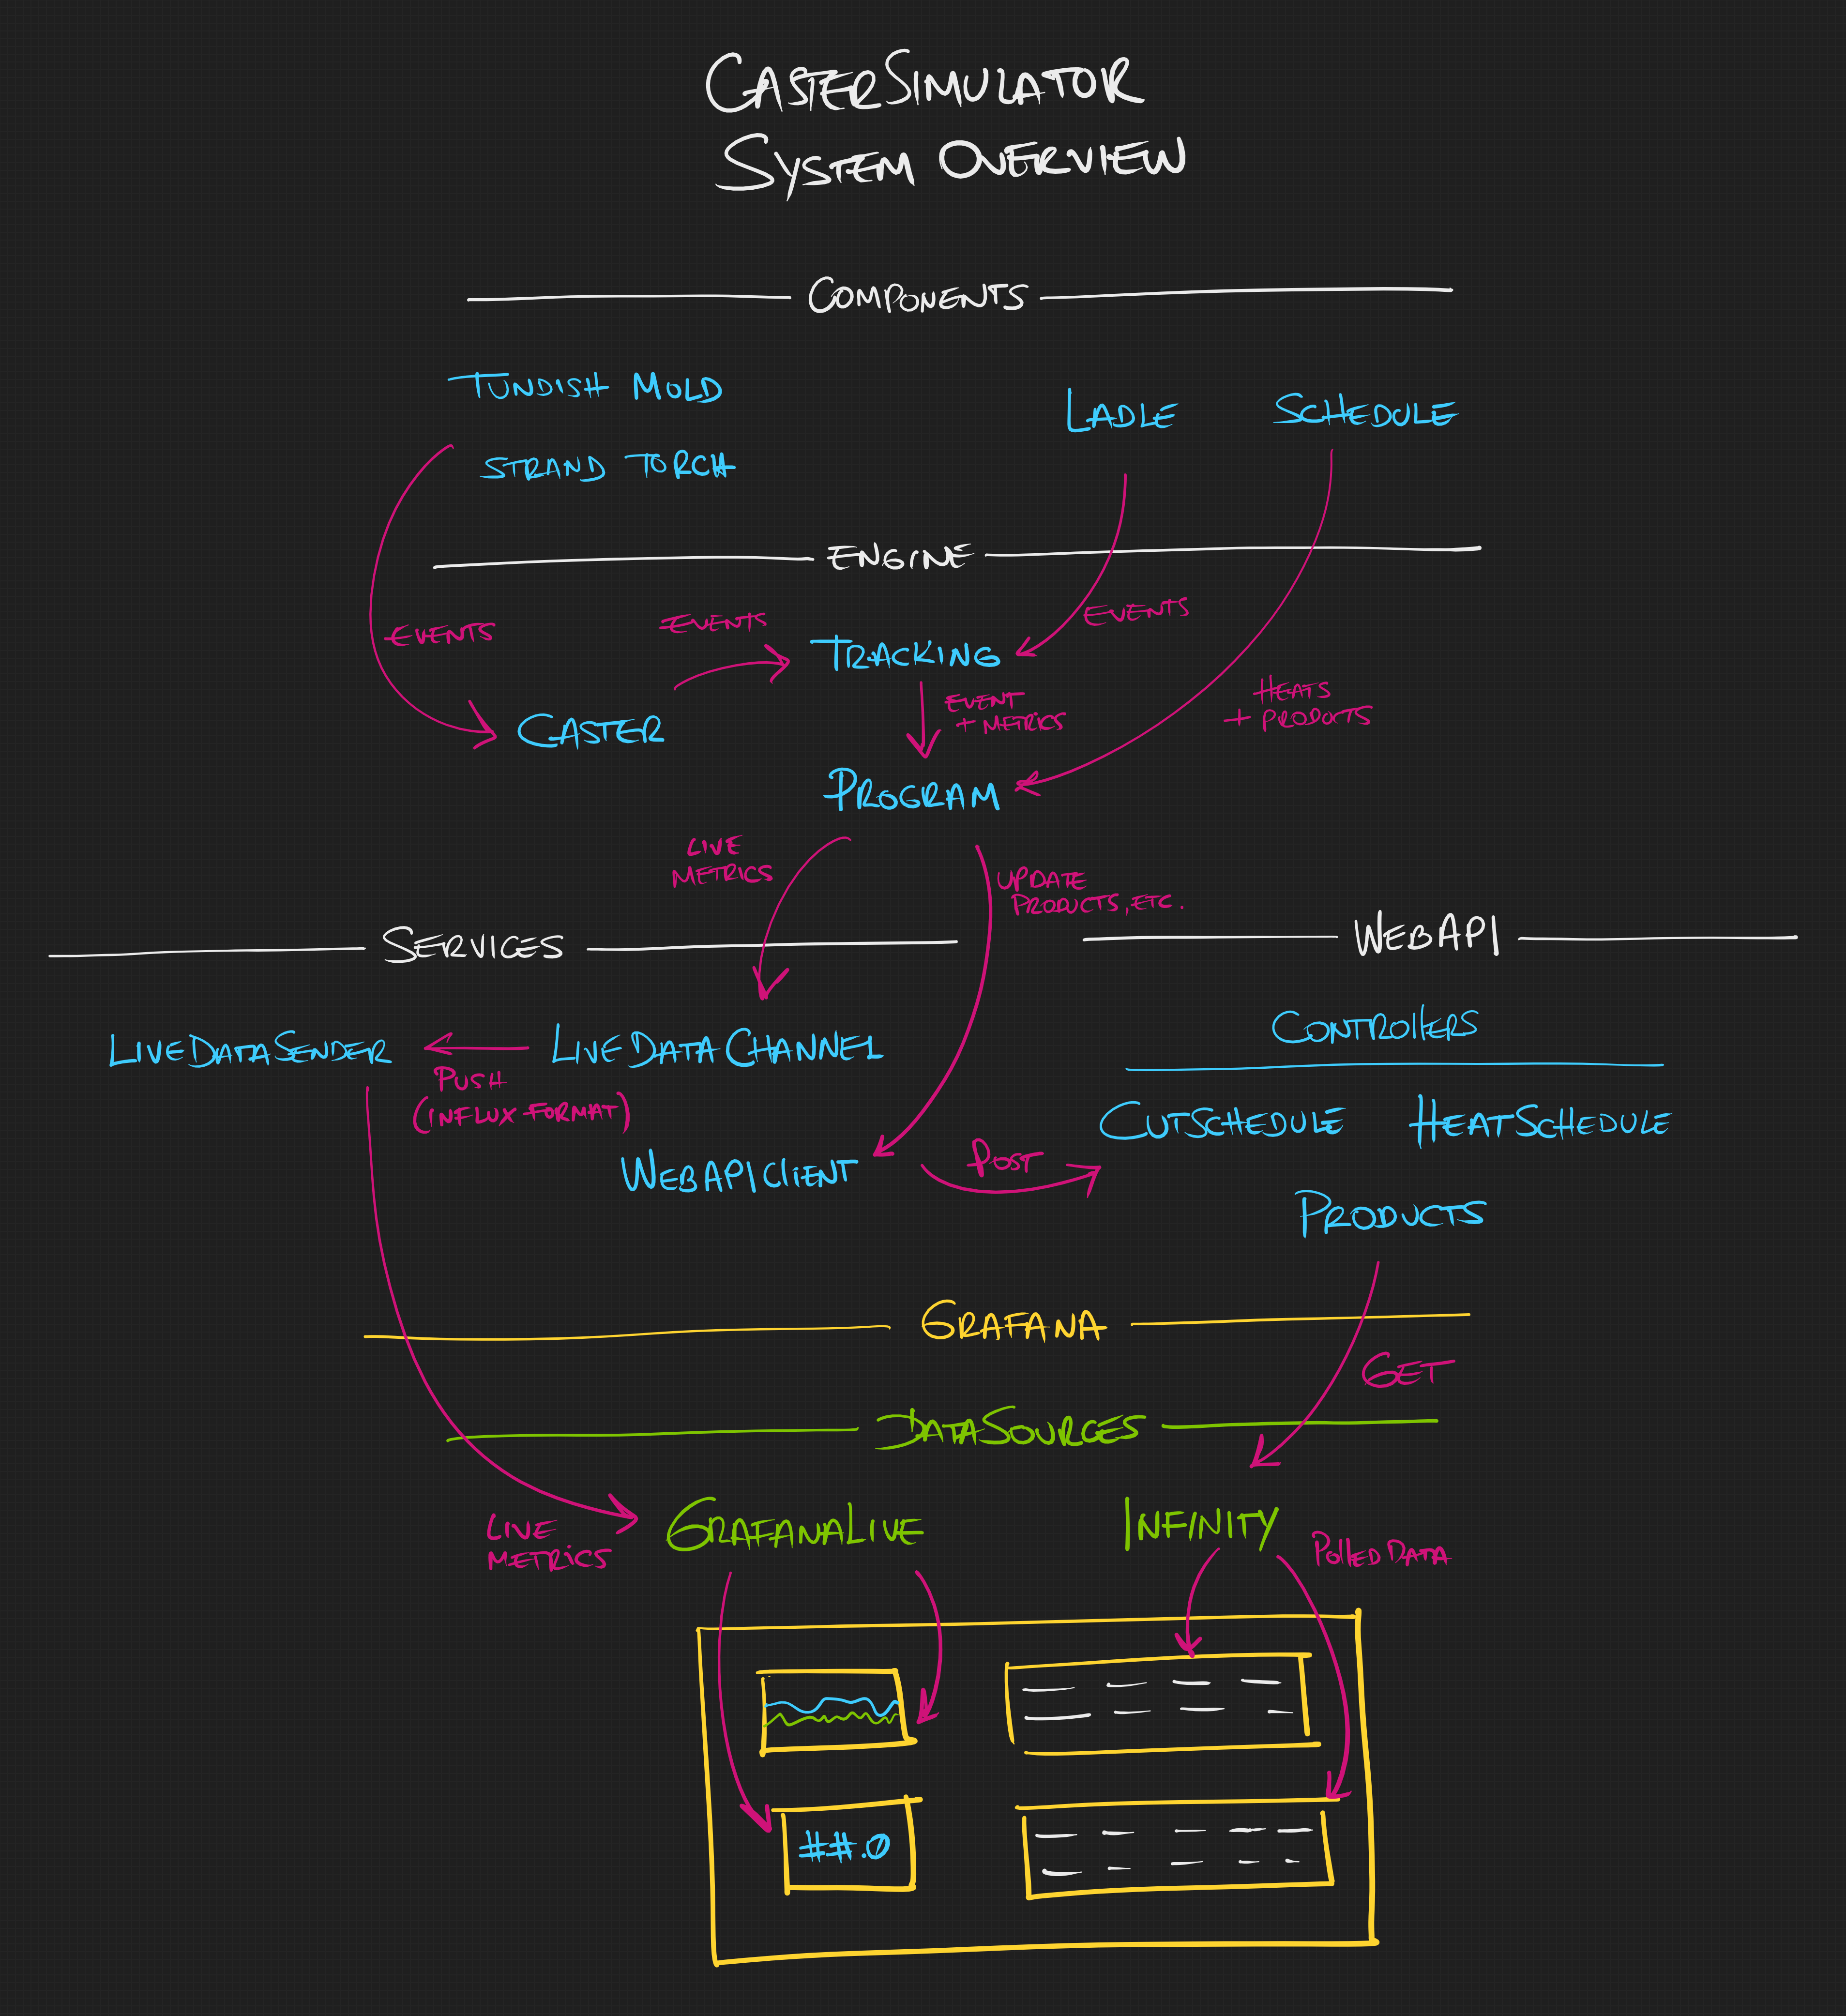 CASTERSIMULATOR
SYSTEM OVERVIEW
COMPONENTS
TUNDISH MOLD
STRAND TORCH
LADLE
SCHEDULE
ENGINE
EVENTS
EVENTS
EVENTS
TRACKING
CASTER
EVENT
+ METRICS
HEATS
+ PRODUCTS
PROGRAM
LIVE
METRICS
UPDATE
PRODUCTS, ETC.
SERVICES
WEBAPI
LIVEDATASENDER
LIVEDATACHANNEL
PUSH
(INFLUX FORMAT)
WEBAPICLIENT
POST
CONTROLLERS
CUTSCHEDULE
HEATSCHEDULE
PRODUCTS
GRAFANA
GET
DATASOURCES
LIVE
METRICS
GRAFANALIVE
INFINITY
POLLED DATA
##.0